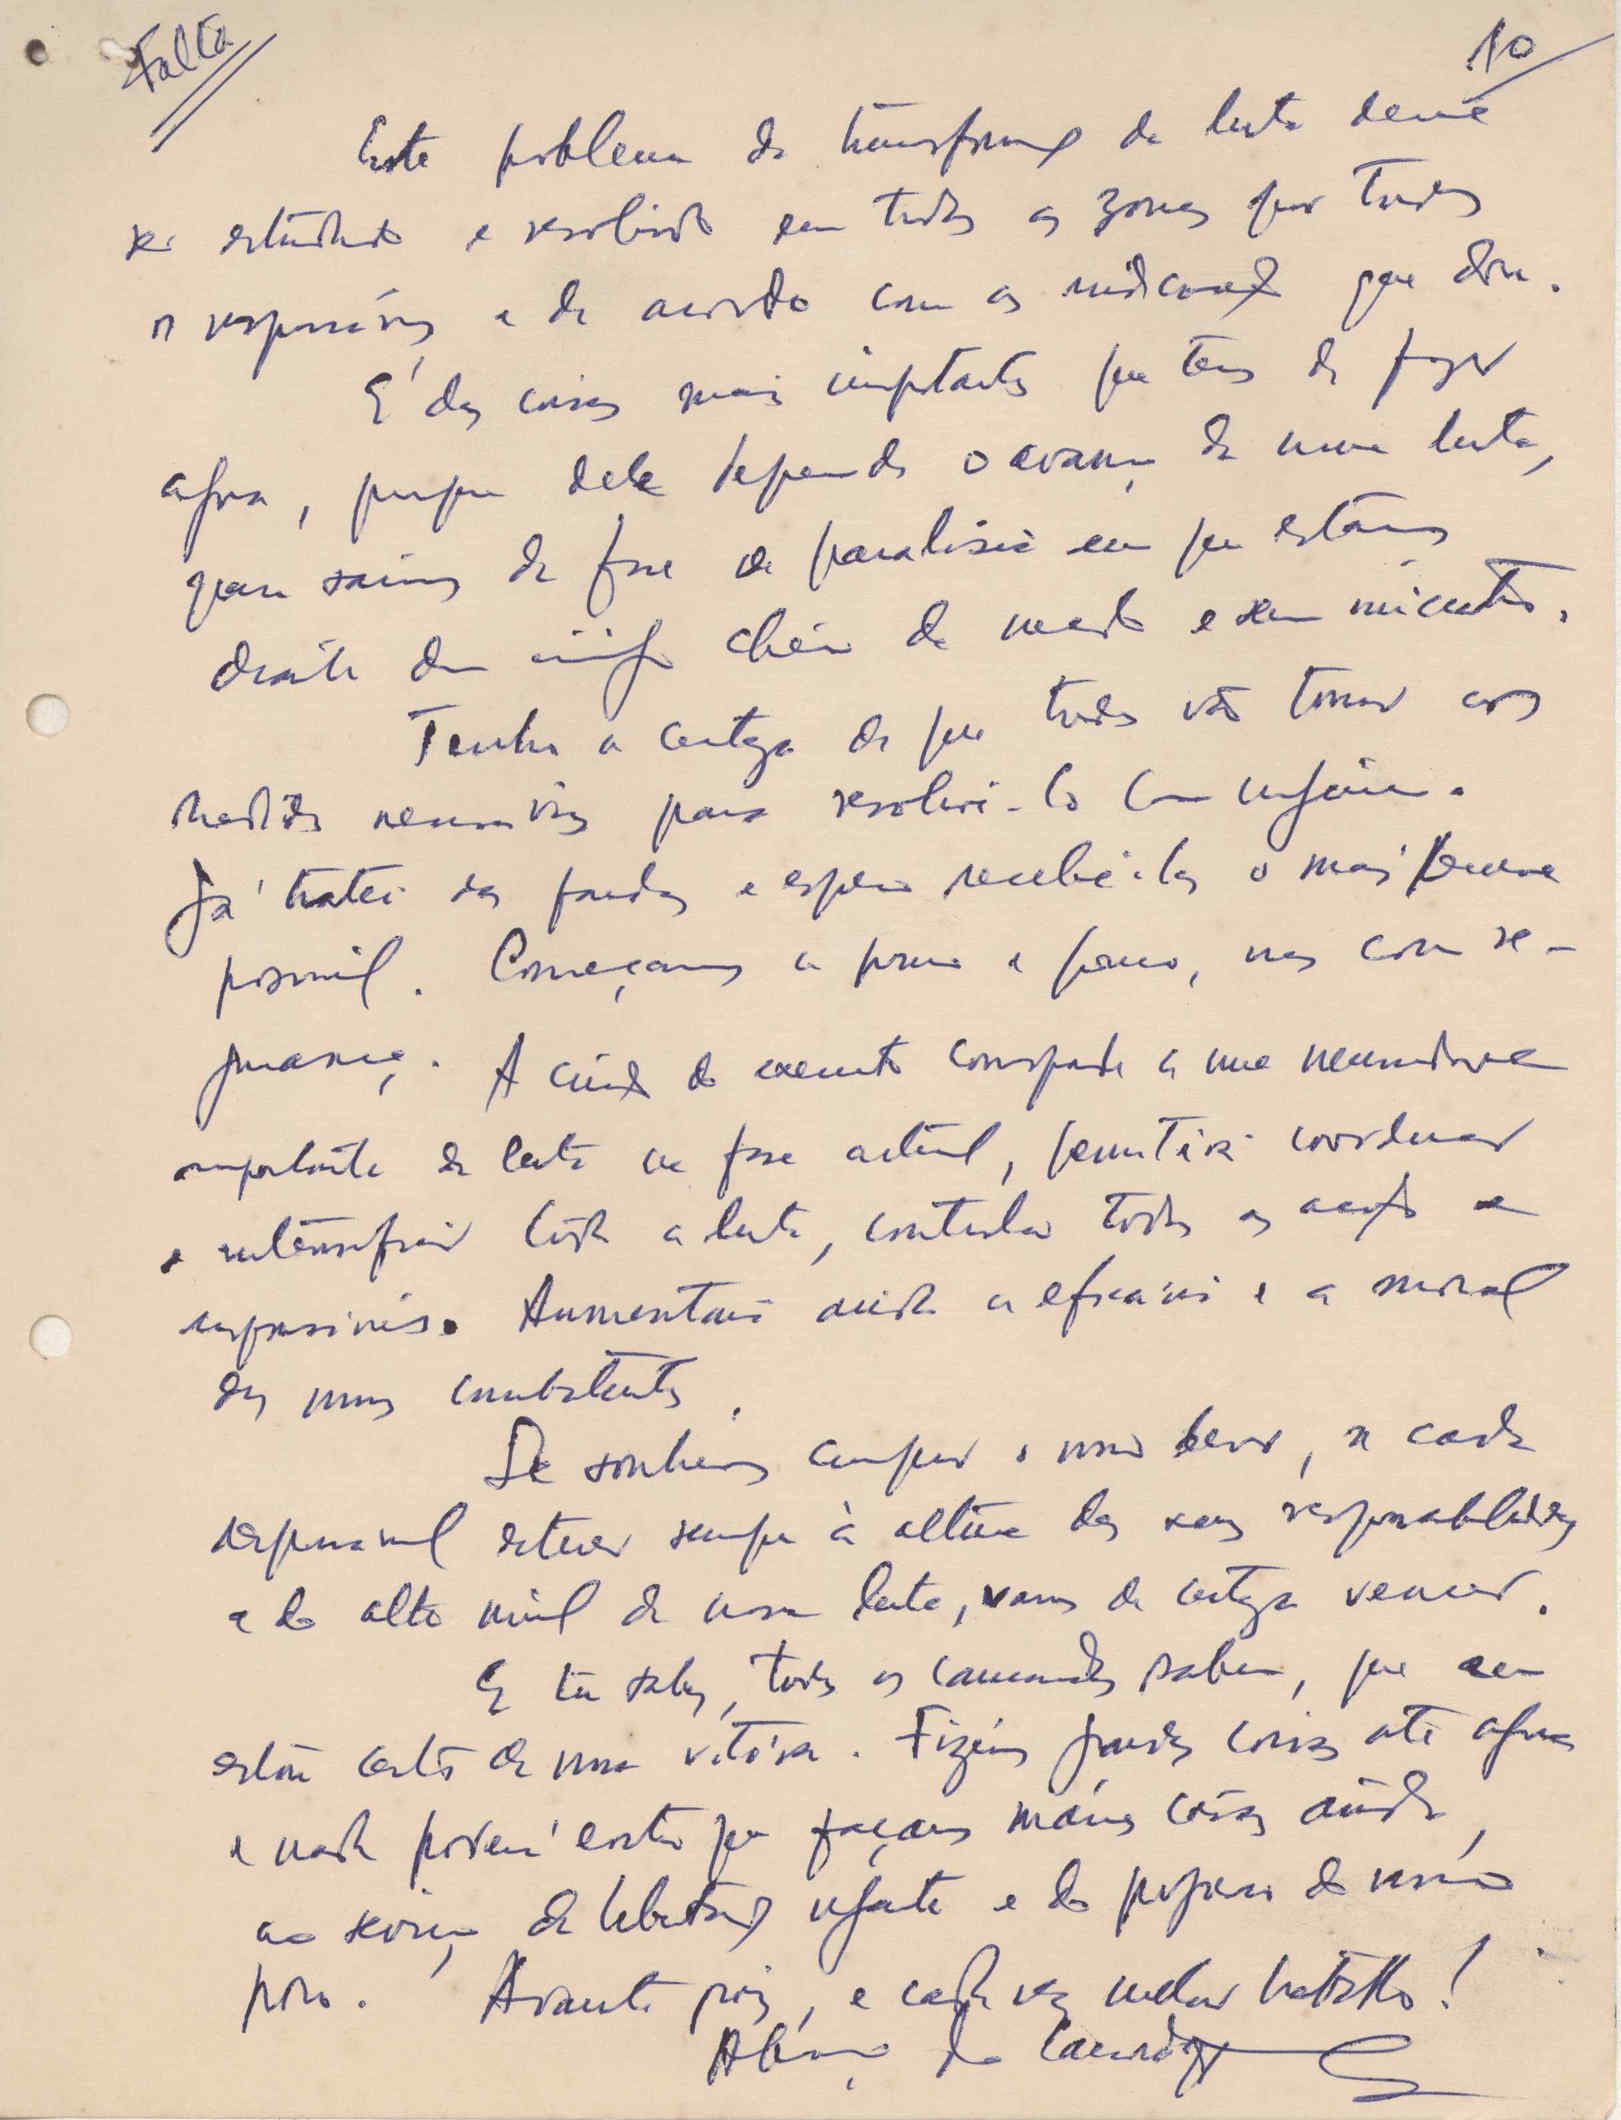 Falta
10
Este problema da transformação da luta deve
ser estudado e resolvido em todas as zonas por todos
os responsáveis e de acordo com as indicações que dou.
É das coisas mais importantes que temos de fazer
agora, porque dele depende o avanço da nossa luta,
para sairmos da fase de paralisia em que estamos
diante dum inimigo cheio de medo e sem
Tenho a certeza de que todos vão tomar as
medidas necessárias para resolvê-lo com urgência.
Já tratei das fardas e espero recebê-las o mais breve
possível. Começamos a pouco e pouco, mas com se-
gurança. A criação do exército corresponde a uma necessidade
importante da luta na fase actual, permitirá coordenar
e intensificar toda a luta, controlar todas as acções e
responsáveis. Aumentará ainda a eficácia e a moral
dos nossos combatentes.
Se soubermos cumprir o nosso dever, se cada
responsável estiver sempre à altura das suas responsabilidades
e do alto nível da nossa luta, vamos de certeza vencer.
E tu sabes, todos os camaradas sabem, que eu
estou certo da nossa vitória. Fizémos grandes coisas até agora
e nada poderá evitar que façamos mais coisas ainda,
ao serviço da libertação urgente e do progresso do nosso
povo. Avante pois, e cada vez melhor trabalho!
Abraço do camarada